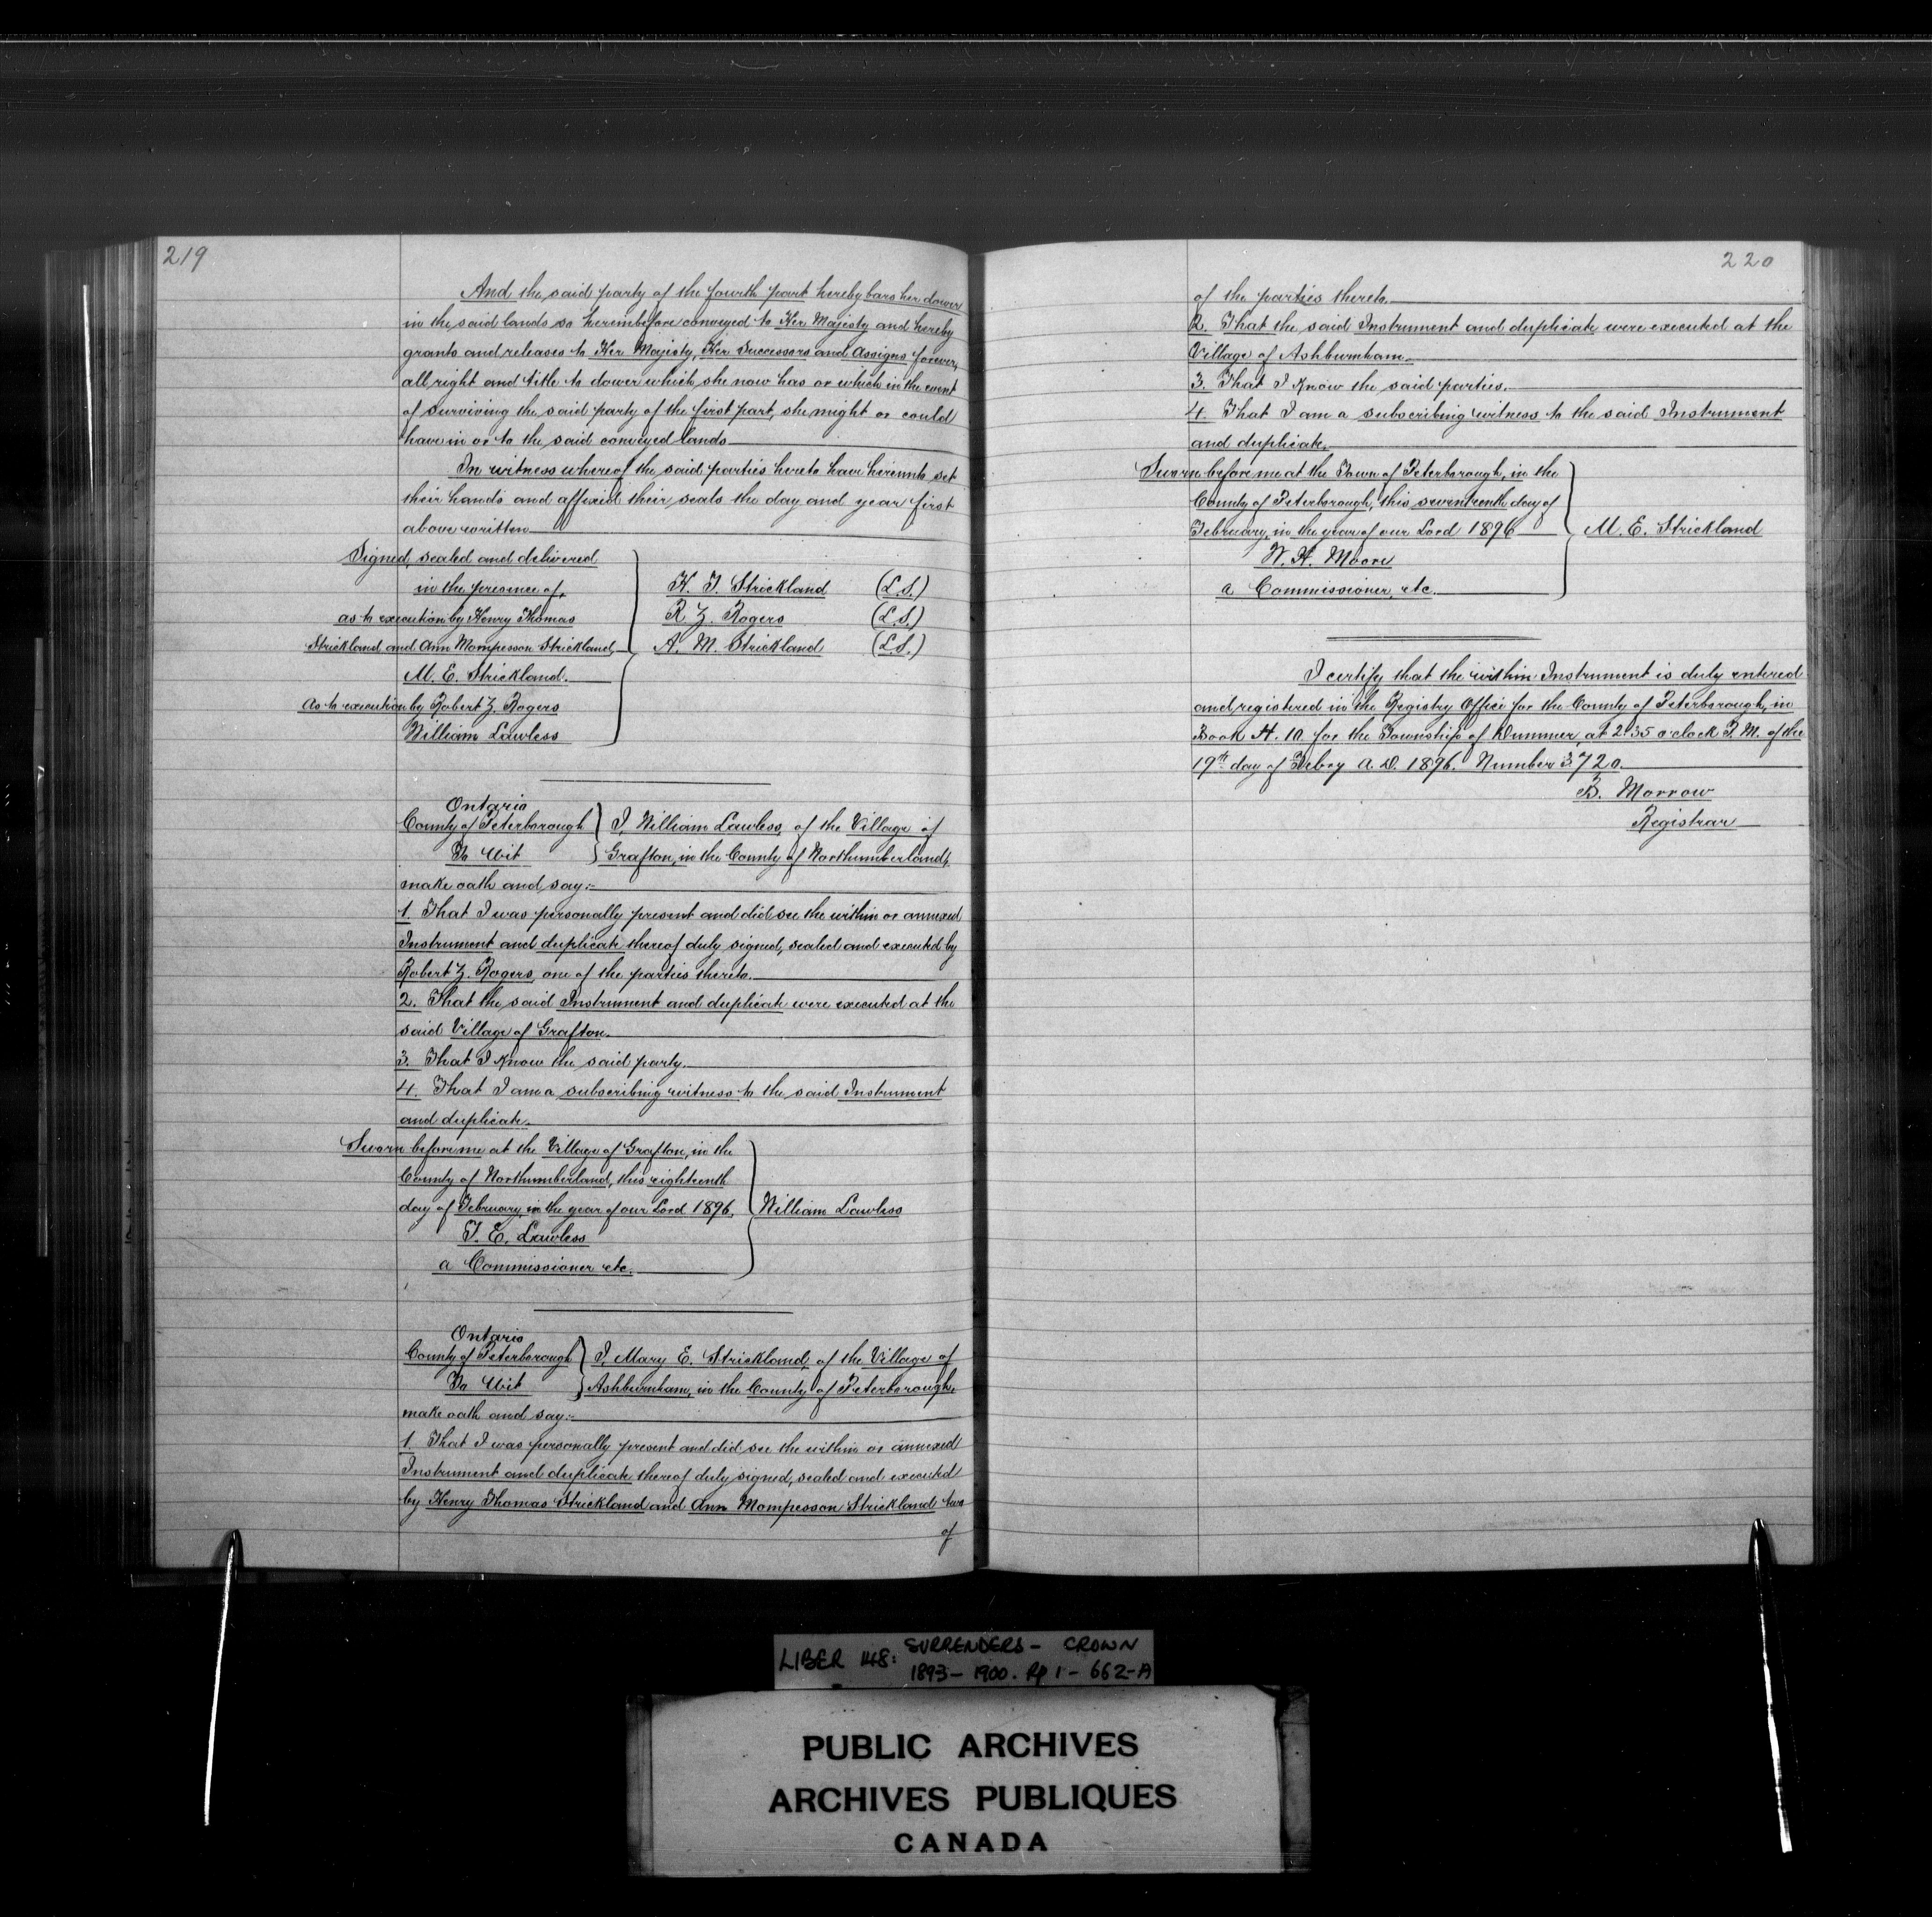 219
And the said party of the fourth part hereby bars her dower
in the said lands so hereinbefore conveyed to Her Majesty and hereby
grants and releases to Her Majesty, Her Successors and Assigns forever,
all right and title to dower which she now has or which in the event
of surviving the said party of the first part, she might or could
have in or to the said conveyed lands
In witness whereof the said parties hereto have hereunto set
their hands and affixed their seals the day and year first
above written
Signed, sealed and delivered
in the presence of,
as to execution by Henry Thomas
Strickland and Ann Mompesson Strickland,
M. E. Strickland.
As to execution by Robert Z. Rogers
William Lawless
H. T. Strickland (L.S.)
R. Z. Rogers (L.S.)
A. M. Strickland (L.S.)
Ontario
County of Peterborough
To Wit
I, William Lawless, of the Village of
Grafton, in the County of Northumberland,
make oath and say:-
1. That I was personally present and did see the within or annexed
Instrument and duplicate thereof duly signed, sealed and executed by
Robert Z. Rogers, one of the parties thereto.
2. That the said Instrument and duplicate were executed at the
said Village of Grafton.
3. That I know the said party.
4. That I am a subscribing witness to the said Instrument
and duplicate.
Sworn before me at the Village of Grafton, in the
County of Northumberland, this eighteenth
day of February, in the year of our Lord 1896.
T. E. Lawless
a Commissioner etc.
William Lawless
Ontario
County of Peterborough
To Wit
I, Mary E. Strickland, of the Village of
Ashburnham, in the County of Peterborough,
make oath and say:-
1. That I was personally present and did see the within or annexed
Instrument and duplicate thereof duly signed, sealed and executed
by Henry Thomas Strickland and Ann Mompesson Strickland two
of
220
of the parties thereto.
2. That the said Instrument and duplicate were executed at the
Village of Ashburnham.
3. That I know the said parties.
4. That I am a subscribing witness to the said Instrument
and duplicate.
Sworn before me at the Town of Peterborough, in the
County of Peterborough, this seventeenth day of
February, in the year of our Lord 1896
W. H. Moore
a Commissioner, etc.
M. E. Strickland
I certify that the within Instrument is duly entered
and registered in the Registry Office for the County of Peterborough, in
Book H. 10. for the Township of Dummer, at 2.35 o'clock P.M. of the
19th day of Feby A.D. 1896. Number 3720.
B. Morrow
Registrar
LIBER 148: SURRENDERS - CROWN
1893 - 1900. Pp 1 - 662-A
PUBLIC ARCHIVES
ARCHIVES PUBLIQUES
CANADA